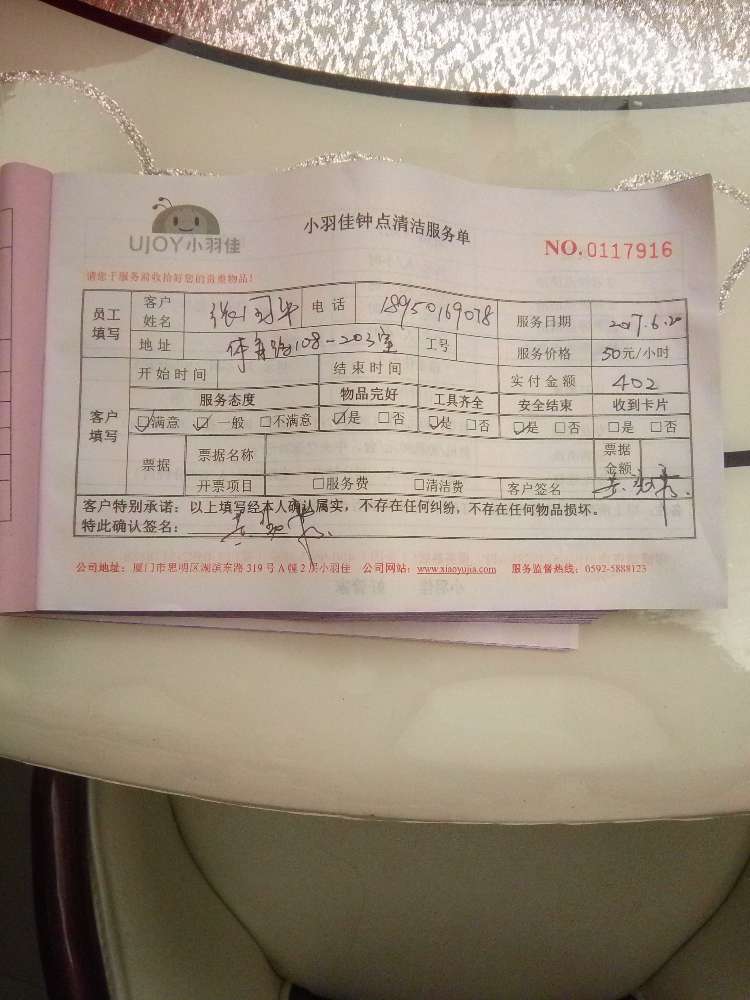 UJOY小羽佳
小羽佳钟点清洁服务单
NO.0117916
请您于服务前收拾好您的贵重物品!
员工填写 客户姓名 电话 18950169078 服务日期 2017.6.20
地址 体育路108-203室 工号 服务价格 50元/小时
开始时间 结束时间 实付金额 402
客户填写 服务态度 物品完好 工具齐全 安全结束 收到卡片
☑满意 ☑一般 □不满意 ☑是 □否 ☑是 □否 ☑是 □否 □是 □否
票据 票据名称 票据金额
开票项目 □服务费 □清洁费 客户签名
客户特别承诺：以上填写经本人确认属实，不存在任何纠纷，不存在任何物品损坏。
特此确认签名：
公司地址：厦门市思明区湖滨东路319号A幢2层小羽佳 公司网站：www.xiaoyujia.com 服务监督热线：0592-5888123